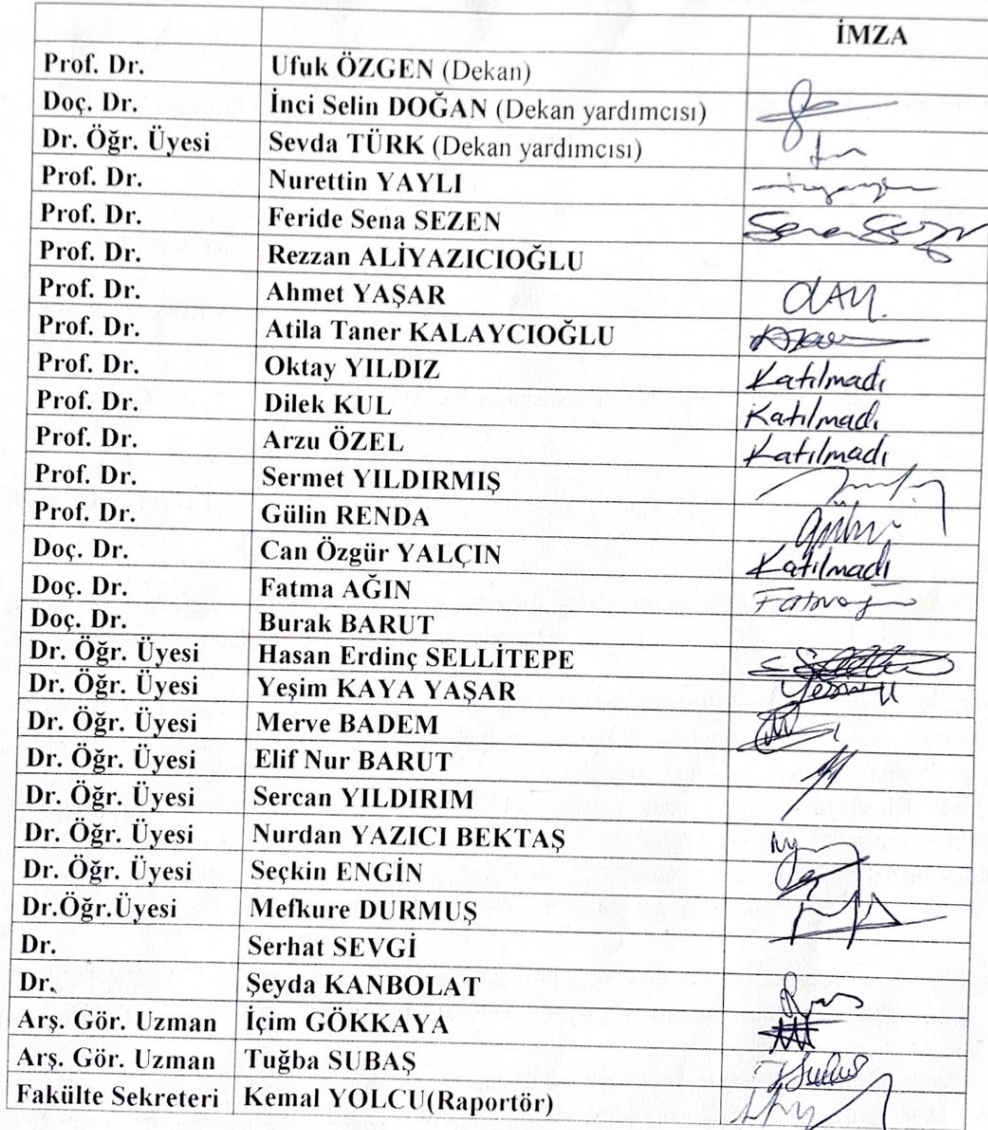 İMZA
Prof. Dr. Ufuk ÖZGEN (Dekan)
Doç. Dr. İnci Selin DOĞAN (Dekan yardımcısı)
Dr. Öğr. Üyesi Sevda TÜRK (Dekan yardımcısı)
Prof. Dr. Nurettin YAYLI
Prof. Dr. Feride Sena SEZEN
Prof. Dr. Rezzan ALİYAZICIOĞLU
Prof. Dr. Ahmet YAŞAR
Prof. Dr. Atila Taner KALAYCIOĞLU
Prof. Dr. Oktay YILDIZ Katılmadı
Prof. Dr. Dilek KUL Katılmadı
Prof. Dr. Arzu ÖZEL Katılmadı
Prof. Dr. Sermet YILDIRMIŞ
Prof. Dr. Gülin RENDA
Doç. Dr. Can Özgür YALÇIN Katılmadı
Doç. Dr. Fatma AĞIN
Doç. Dr. Burak BARUT
Dr. Öğr. Üyesi Hasan Erdinç SELLİTEPE
Dr. Öğr. Üyesi Yeşim KAYA YAŞAR
Dr. Öğr. Üyesi Merve BADEM
Dr. Öğr. Üyesi Elif Nur BARUT
Dr. Öğr. Üyesi Sercan YILDIRIM
Dr. Öğr. Üyesi Nurdan YAZICI BEKTAŞ
Dr. Öğr. Üyesi Seçkin ENGİN
Dr.Öğr.Üyesi Mefkure DURMUŞ
Dr. Serhat SEVGİ
Dr. Şeyda KANBOLAT
Arş. Gör. Uzman İçim GÖKKAYA
Arş. Gör. Uzman Tuğba SUBAŞ
Fakülte Sekreteri Kemal YOLCU(Raportör)